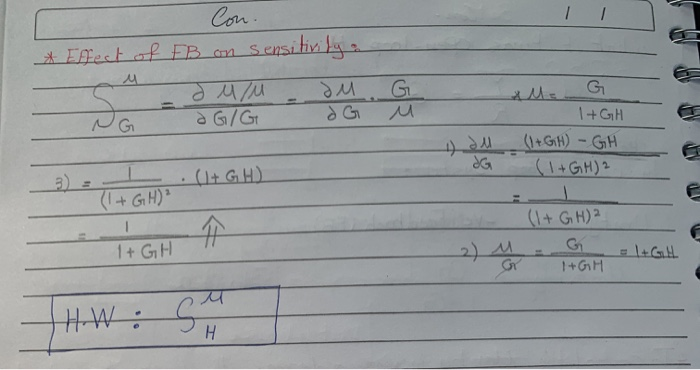 Con. / /
* Effect of FB on sensitivity:
S^M_G = ∂M/M / ∂G/G = ∂M/∂G · G/M
* M = G/(1+GH)
1) ∂M/∂G = ((1+GH) - GH)/(1+GH)²
= 1/(1+GH)²
2) M/G = G/(1+GH) = 1+GH
3) = 1/(1+GH)² · (1+GH)
= 1/(1+GH) ⇑
H.W : S^M_H